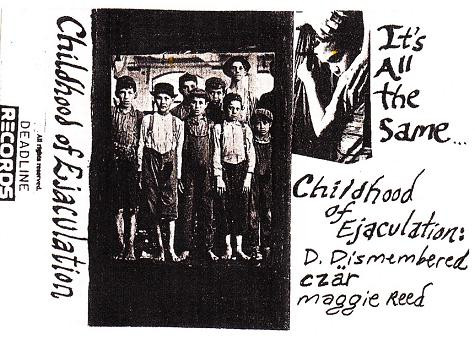 Childhood of Ejaculation
All rights reserved.
DEADLINE
RECORDS
It's
All
the
Same...
Childhood
of
Ejaculation:
D. Dismembered
czär
maggie Reed